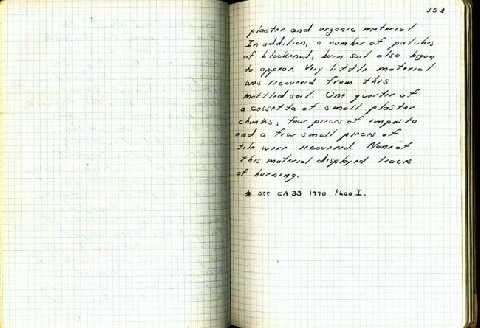 158
plaster and organic material
In addition, a number of patches
of blackened, burn soil also began
to appear. Very little material
was recovered from this
mottled soil. One quarter of
a cassetta of small plaster
chunks, four pieces of impasto
and a few small pieces of
tile were recovered. None of
this material displayed traces
of burning.
* see CA 33 1990 Plan I.